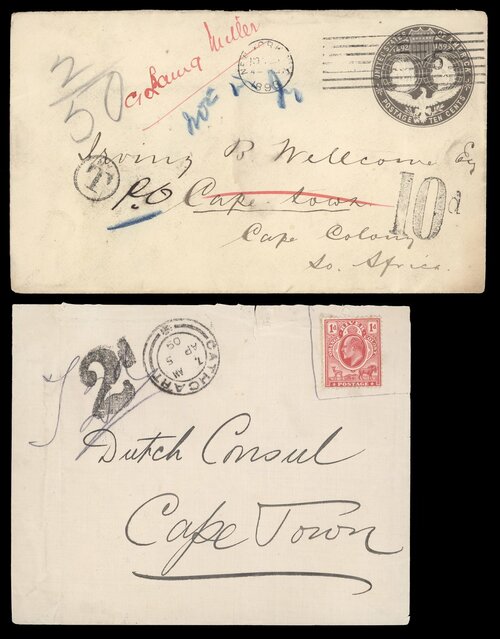 2/50
Miller
NEW YORK
UNITED STATES OF AMERICA
1492 1892
POSTAGE TEN CENTS
Irving B Wellcome Esq
T
P.O Cape Town
10d
Cape Colony
So. Africa.
CATHCART
AM 5
AP 7
05
2d
1d 1d
POSTAGE
Dutch Consul
Cape Town